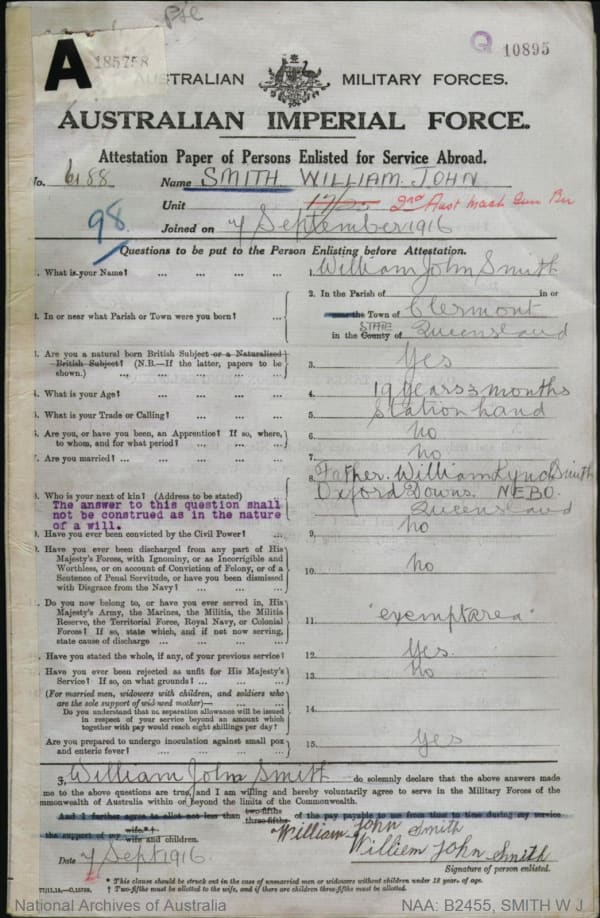 10895
A 185758
AUSTRALIAN MILITARY FORCES.
AUSTRALIAN IMPERIAL FORCE.
Attestation Paper of Persons Enlisted for Service Abroad.
No. 6188 Name SMITH WILLIAM JOHN
Unit 2nd Aust Mach Gun Bn
98 Joined on 7 September 1916
Questions to be put to the Person Enlisting before Attestation.
1. What is your Name? ... ... ... ... 1. William John Smith
2. In or near what Parish or Town were you born? ... 2. In the Parish of in or
near the Town of Clermont
in the County of STATE Queensland
3. Are you a natural born British Subject or a Naturalised
British Subject? (N.B.—If the latter, papers to be
shown.) 3. Yes
4. What is your Age? ... ... ... 4. 19 years 3 months
5. What is your Trade or Calling? ... ... ... 5. Station hand
6. Are you, or have you been, an Apprentice? If so, where,
to whom, and for what period? ... ... 6. no
7. Are you married? ... ... ... ... 7. no
8. Who is your next of kin? (Address to be stated) ... 8. Father. William Lynch Smith
Oxford Downs. NEBO.
Queensland
The answer to this question shall
not be construed as in the nature
of a will.
9. Have you ever been convicted by the Civil Power? ... 9. no
10. Have you ever been discharged from any part of His
Majesty's Forces, with Ignominy, or as Incorrigible and
Worthless, or on account of Conviction of Felony, or of a
Sentence of Penal Servitude, or have you been dismissed
with Disgrace from the Navy? ... ... 10. no
11. Do you now belong to, or have you ever served in, His
Majesty's Army, the Marines, the Militia, the Militia
Reserve, the Territorial Force, Royal Navy, or Colonial
Forces? If so, state which, and if not now serving,
state cause of discharge ... ... ... 11. "exempt area"
12. Have you stated the whole, if any, of your previous service? 12. Yes.
13. Have you ever been rejected as unfit for His Majesty's
Service? If so, on what grounds? ... ... ... 13. No
(For married men, widowers with children, and soldiers who
are the sole support of widowed mother)—
Do you understand that no separation allowance will be issued
in respect of your service beyond an amount which
together with pay would reach eight shillings per day? 14.
15. Are you prepared to undergo inoculation against small pox
and enteric fever? ... ... ... 15. yes
I, William John Smith do solemnly declare that the above answers made
me to the above questions are true, and I am willing and hereby voluntarily agree to serve in the Military Forces of the
mmonwealth of Australia within or beyond the limits of the Commonwealth.
And I further agree to allot not less than two-fifths three-fifths of the pay payable to me from time to time during my service
the support of my wife*† wife and children. William John Smith
William John Smith
Date 7 Sept 1916. Signature of person enlisted.
* This clause should be struck out in the case of unmarried men or widowers without children under 18 years of age.
† Two-fifths must be allotted to the wife, and if there are children three-fifths must be allotted.
National Archives of Australia NAA: B2455, SMITH W J